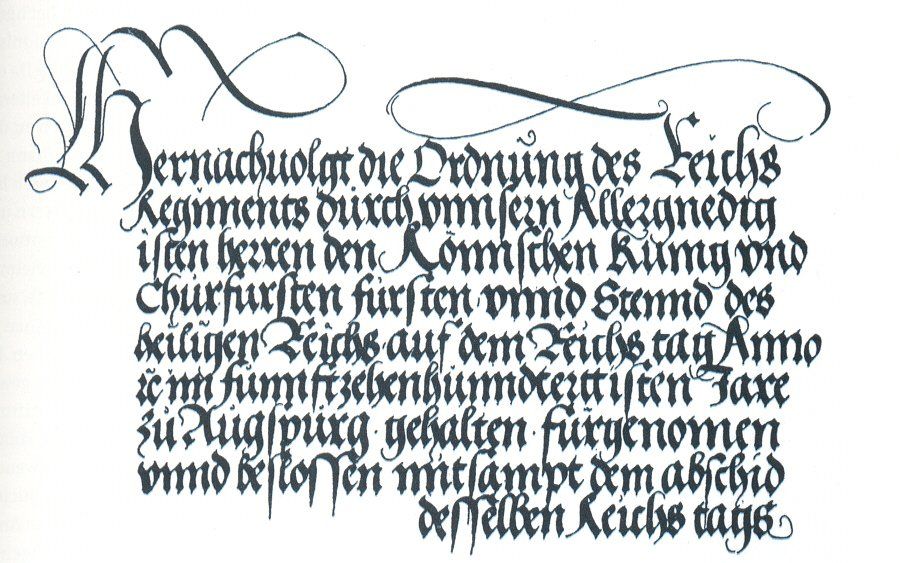 Hernachuolgt die Ordnūng des Reichs
Regiments dūrch vnnsern Allergnedig
isten herren den Römischen Kūnig vnd
Chūrfūrsten fūrsten vnnd Stennd des
heiligen Reichs auf dem Reichs tag Anno
ꝛc im fūnnftzehenhūnndertisten Jare
zū Augspūrg gehalten fūrgenomen
vnnd beslossen mitsampt dem abschid
desselben Reichs tags